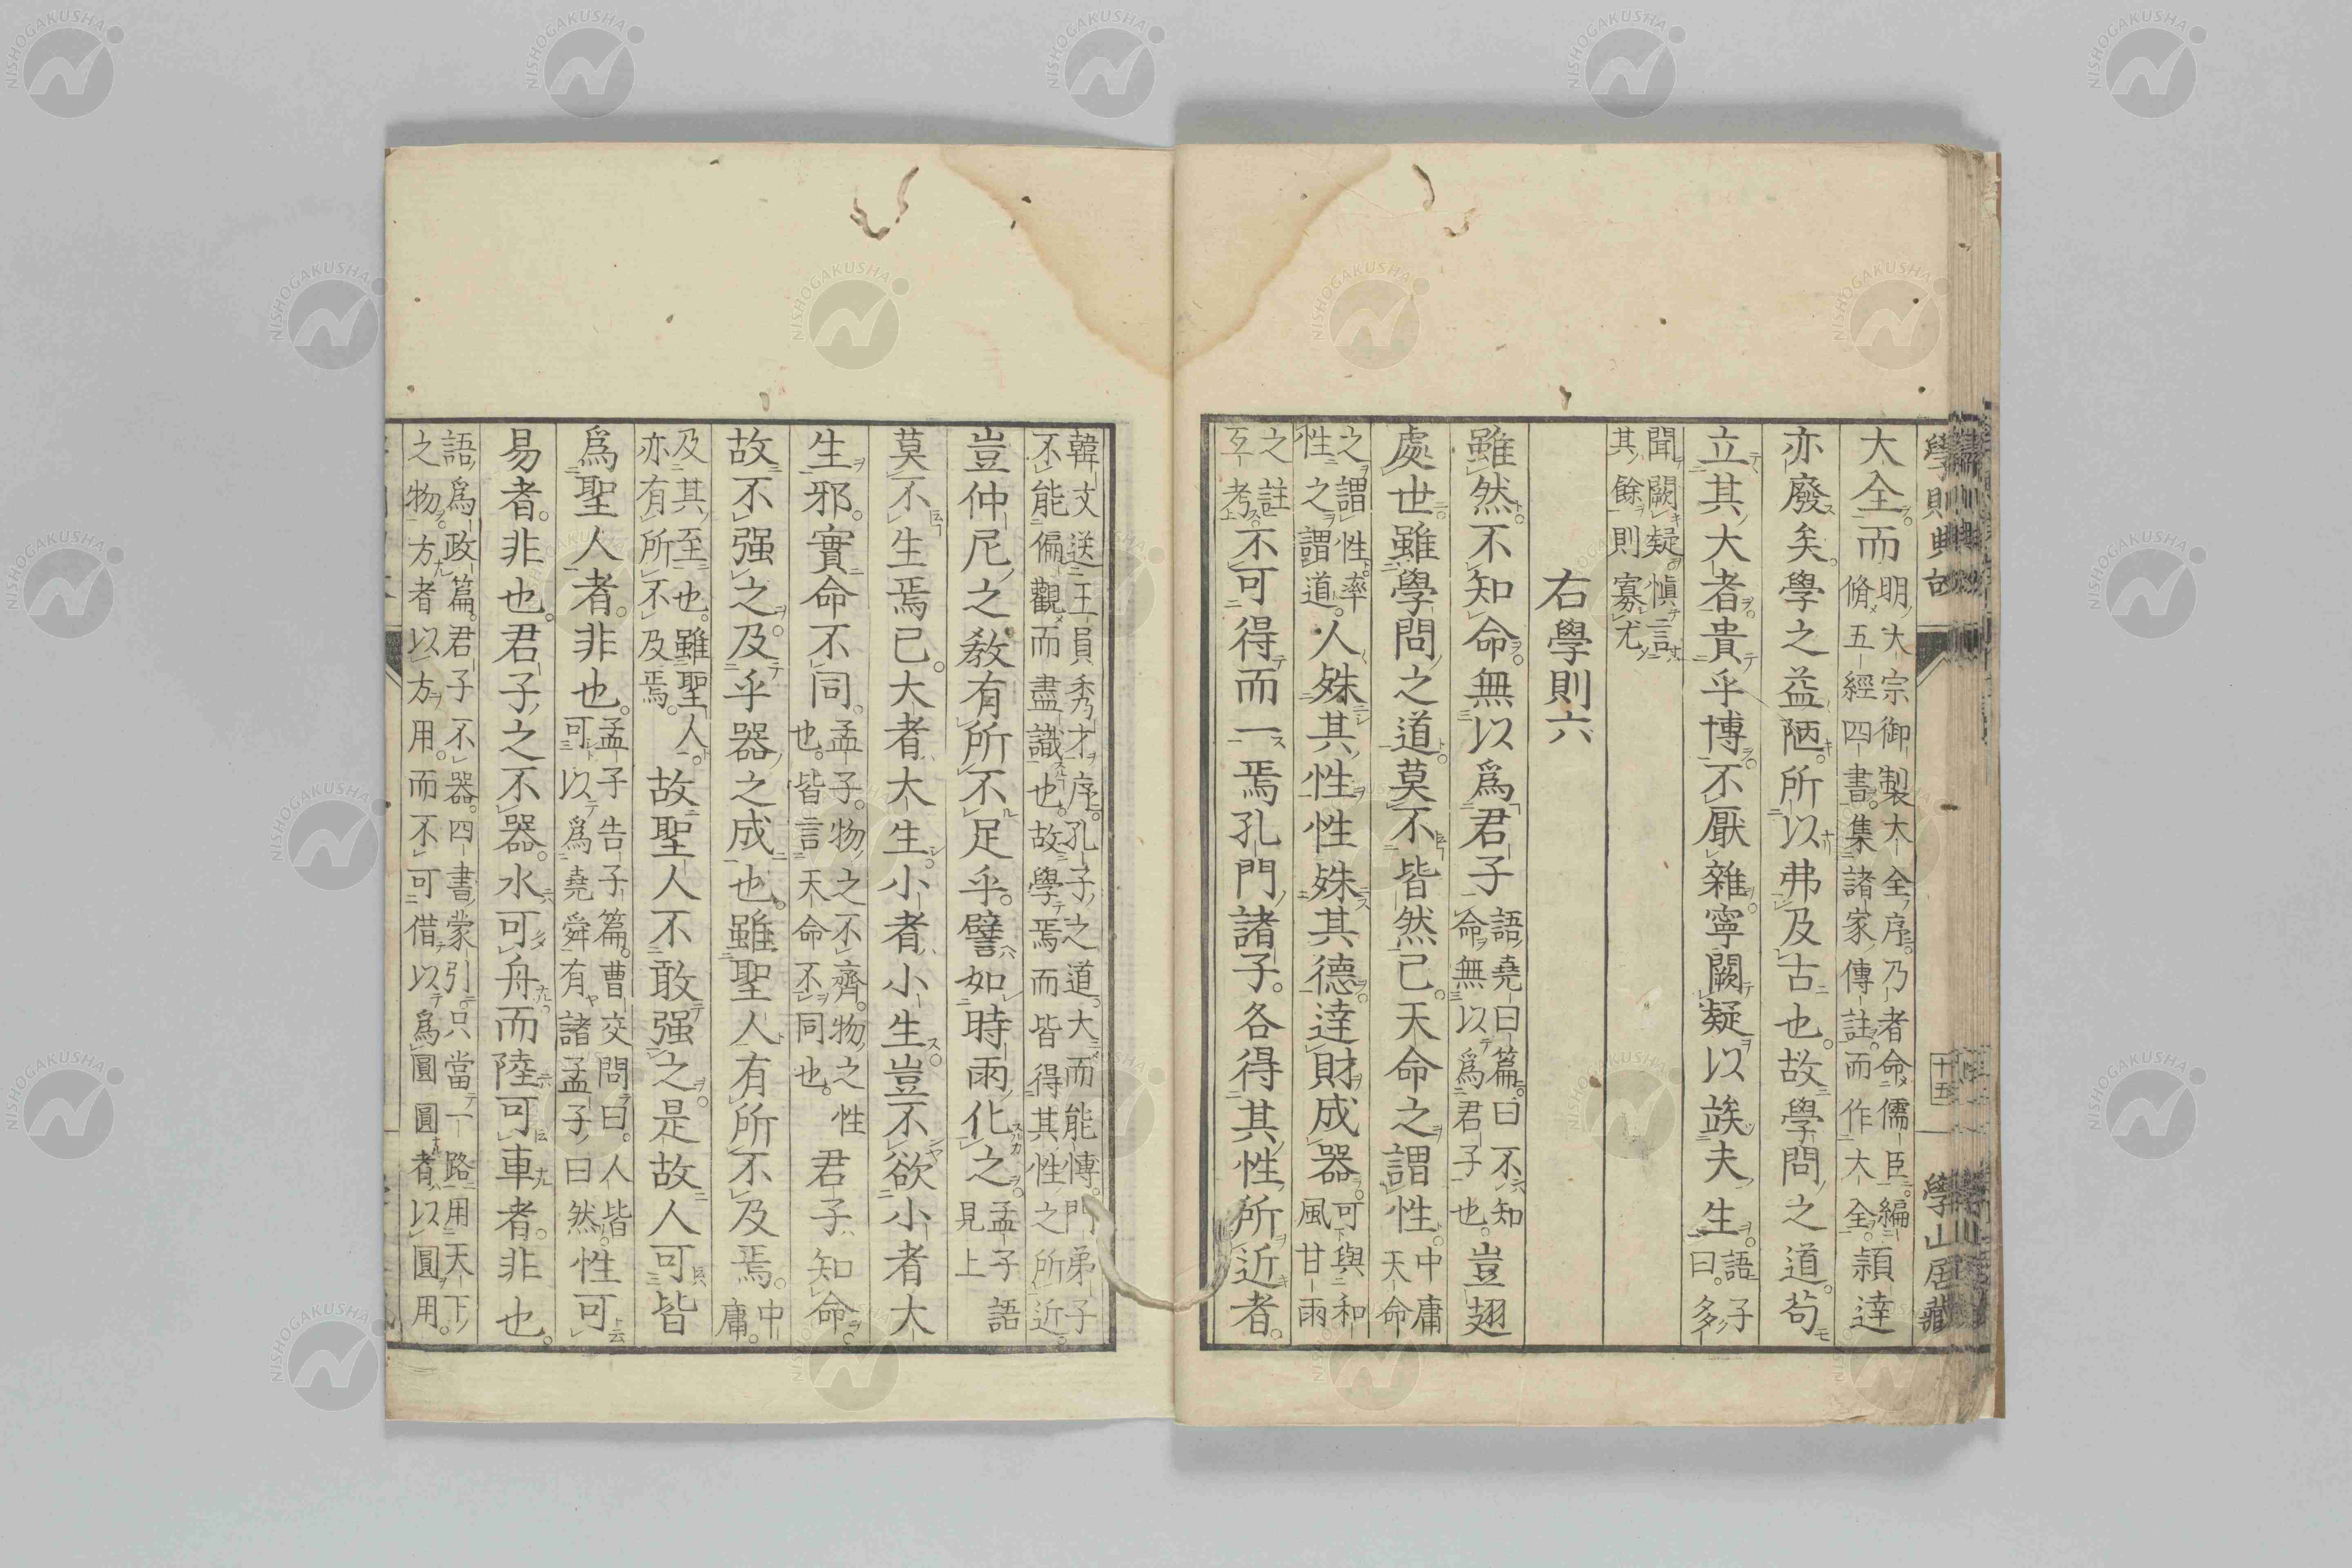 學則典故 十五 學山居藏
大全而明大宗御製大全序乃者命儒臣編脩五經四書集諸家傳註而作大全頴達
亦廢矣。學之益陋。所以弗及古也。故學問之道。苟
立其大者。貴乎博。不厭雜。寧闕疑。以竢夫生。語子曰。多
聞闕疑。慎言
其餘則寡尤
右學則六
雖然。不知命。無以爲君子語堯曰篇。曰不知命無以爲君子也。豈翅
處世。雖學問之道。莫不皆然已。天命之謂性。中庸天命
之謂性率性之謂道。人殊其性。性殊其德。達財成器。可與和風甘雨
之註互考。不可得而一焉。孔門諸子。各得其性所近者。
韓文送王員秀才序。孔子之道。大而能博。門弟子不能偏觀而盡識也。故學焉而皆得其性之所近
豈仲尼之教有所不足乎。譬如時雨化之。孟子語見上
莫不生焉已。大者大生。小者小生。豈不欲小者大
生邪。實命不同。孟子。物之不齊。物之性也。皆言天命不同也。君子知命。
故不强之。及乎器之成也。雖聖人有所不及焉。中庸。
及其至也。雖聖人亦有所不及焉。故聖人不敢强之。是故人可皆
爲聖人者。非也。孟子告子篇。曹交問曰。人皆可以爲堯舜有諸孟子曰然性可
易者。非也。君子之不器。水可舟而陸可車者。非也。
語爲政篇。君子不器。四書蒙引。只當一路用天下之物。方者以方用。而不可借以爲圓圓者以圓用。